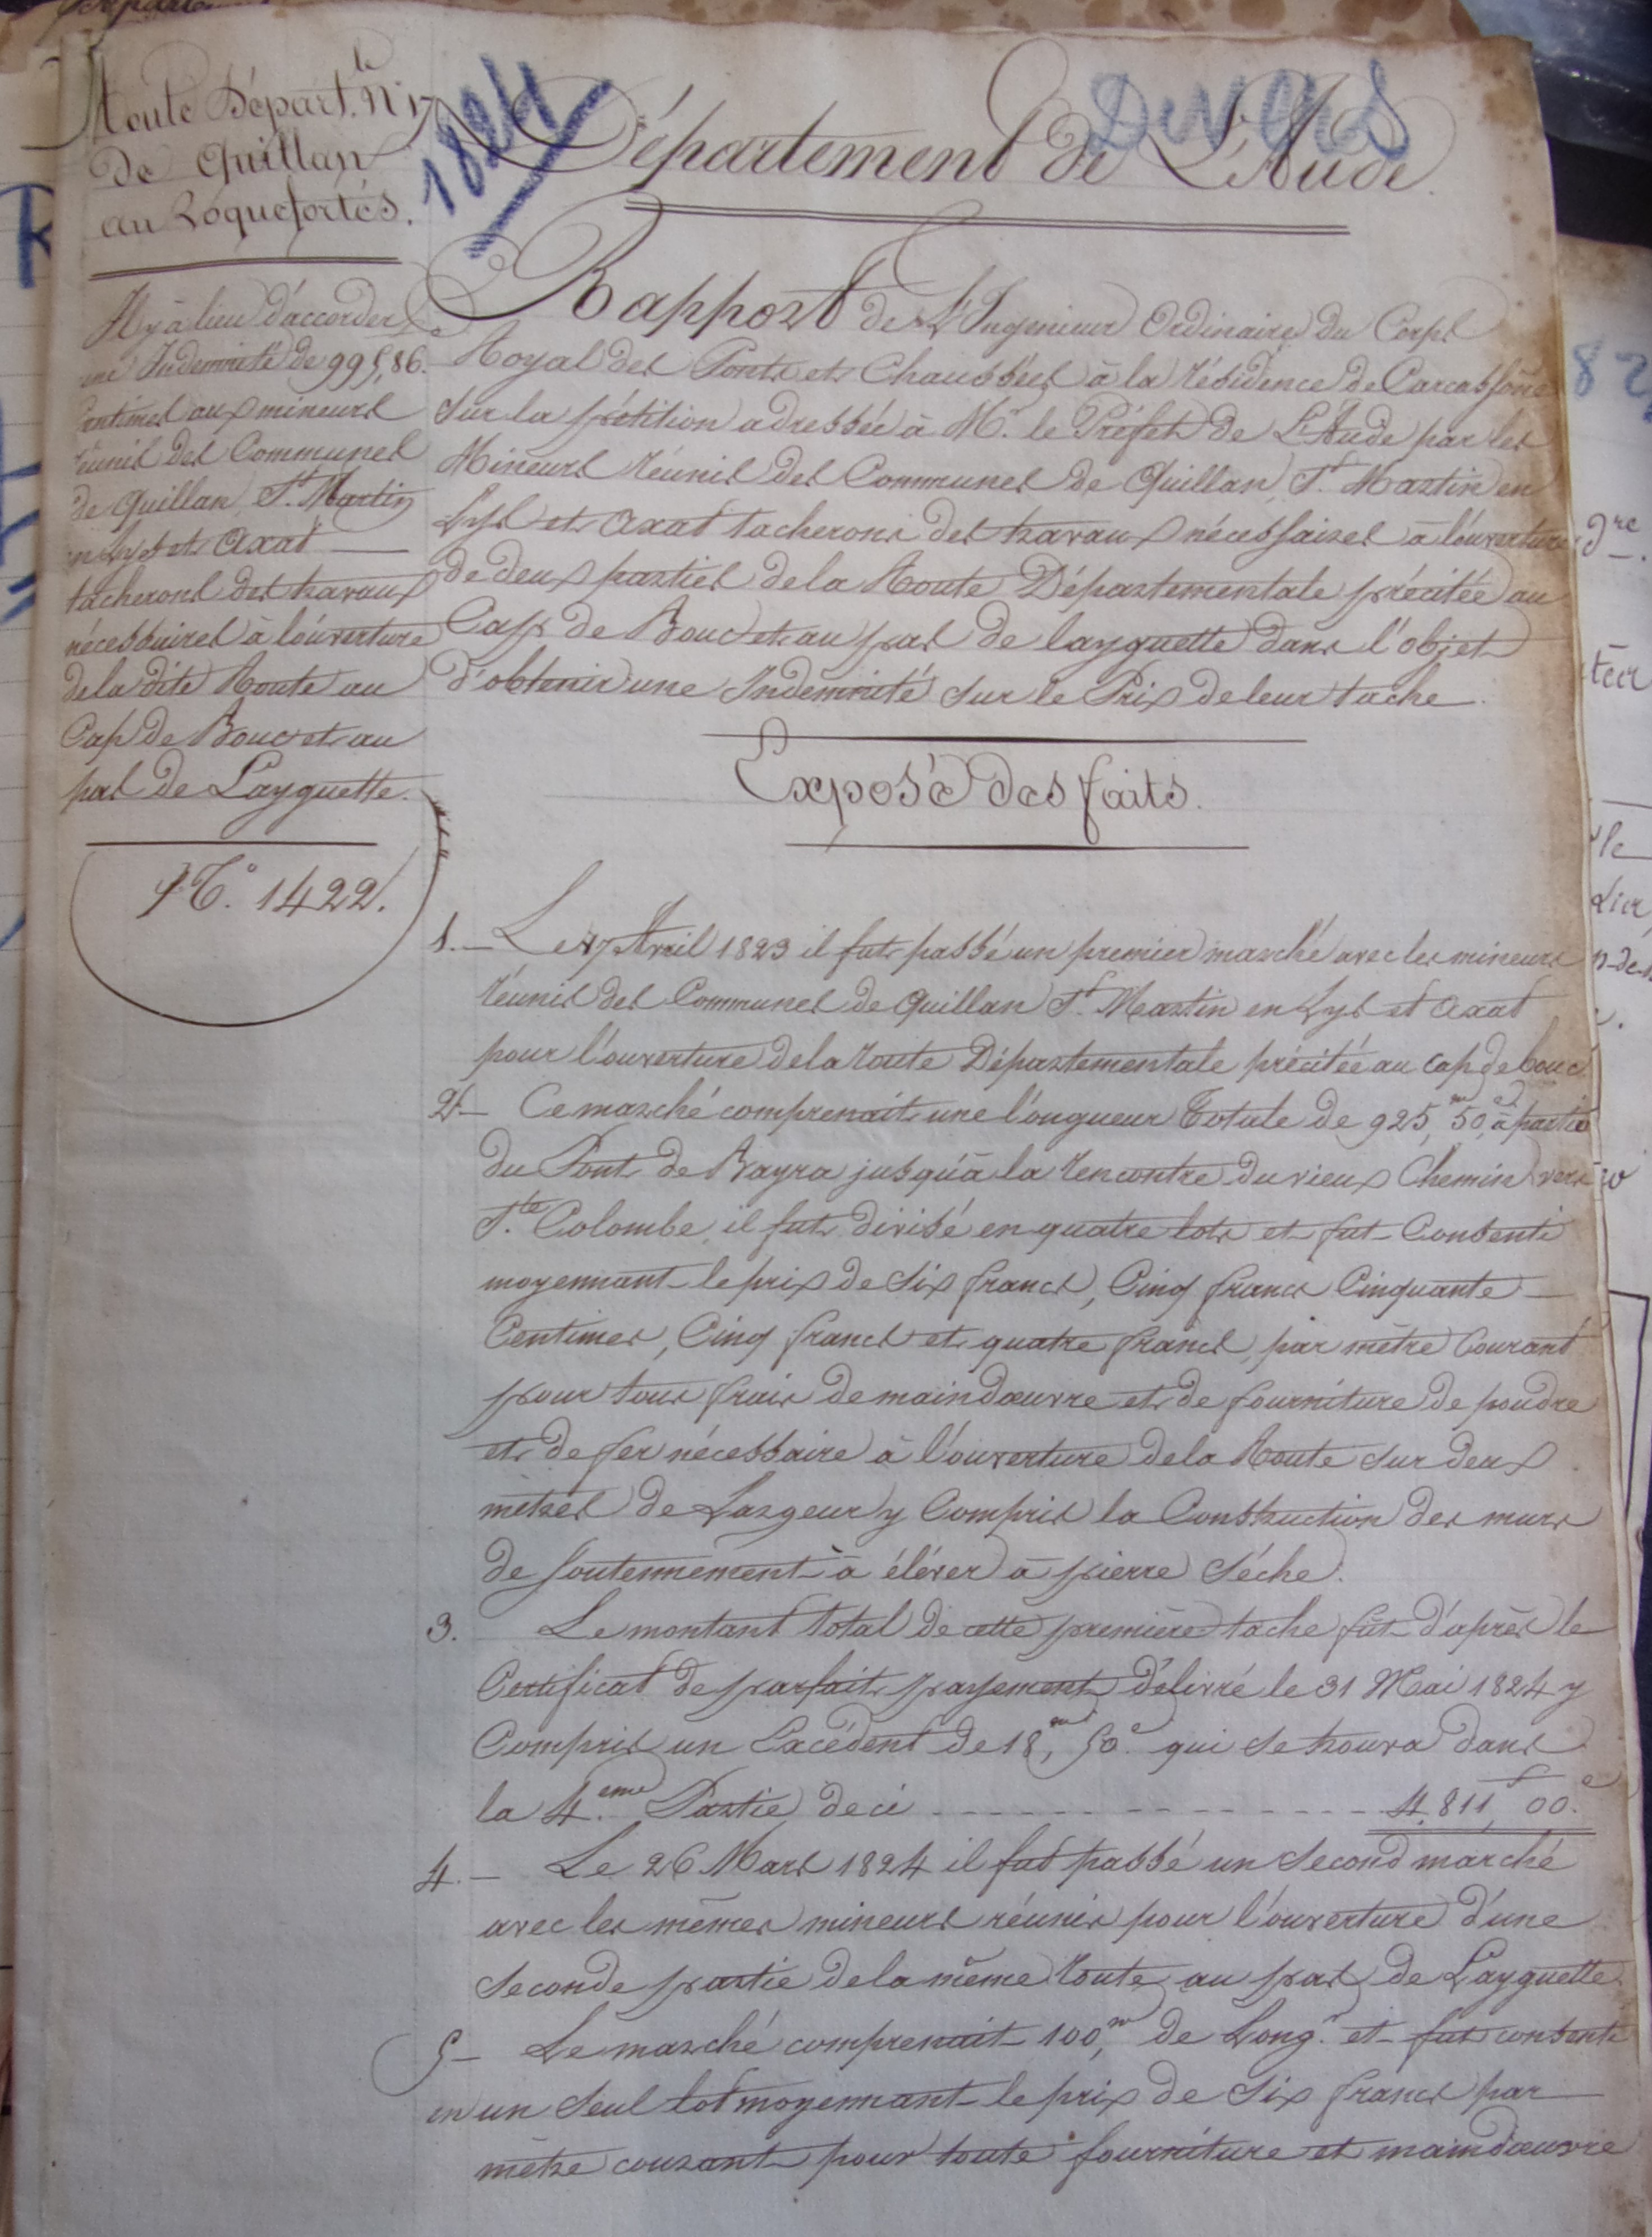 Route Départ.le N° 17
de Quillan
au Roquefortés.
Il y à lieu d'accorder
une Indemnité de 995,86.
Centimes aux mineurs
réunis des Communes
de Quillan, St. Martin
en Lys et Axat —
tacherons des travaux
nécessaires à l'ouverture
de la dite Route au
Cap de Bouc et au
pas de Layguette.
N.° 1422.
1824
Divers
Département de L'Aude.
Rapport de L'Ingenieur Ordinaire du Corps
Royal des Ponts et Chaussées à la résidence de Carcassonne
Sur la pétition adressée à Mr. le Préfet de L'Aude par les
Mineurs réunis des Communes de Quillan, St. Martin en
Lys et Axat tacherons des travaux nécessaires à l'ouverture
de deux parties de la Route Départementale précitée au
Cap de Bouc et au pas de layguette dans l'objet
d'obtenir une Indemnité sur le Prix de leur tache.
Exposé des faits.
1. — Le 17 Avril 1823 il fut passé un premier marché avec les mineurs
réunis des Communes de Quillan St. Martin en Lys et Axat
pour l'ouverture de la route Départementale précitée au cap de bouc
2. — Ce marché comprenait une l'ongueur Totale de 925,m 50,c à partir
du Pont de Rayra jusqu'à la rencontre du vieux Chemin vers
Ste. Colombe, il fut divisé en quatre lots et fut Consenti
moyennant le prix de Six francs, Cinq francs Cinquante —
Centimes, Cinq francs et quatre francs, par mètre Courant
pour tous frais de maindœuvre et de fourniture de poudre
et de fer nécessaire à l'ouverture de la Route sur deux
mètres de Largeur y Compris la Construction des murs
de soutennement à éléver à pierre Séche.
3. Le montant total de cette première tache fut d'après le
Certificat de parfait payement délivré le 31 Mai 1824 y
Compris un Excédent de 18,m 50.c qui se trouva dans
la 4.eme Partie, de ci - - - - - - - - - - - - - - 4,811,f 00.c
4. — Le 26 Mars 1824 il fut passé un Second marché
avec les mêmes mineurs réunis pour l'ouverture d'une
Seconde partie de la même route au pas de Layguette.
5 — Le marché comprenait 100,m de Long.r et fut consenti
en un Seul lot moyennant le prix de Six francs par —
mètre courant pour toute fourniture et maindœuvre